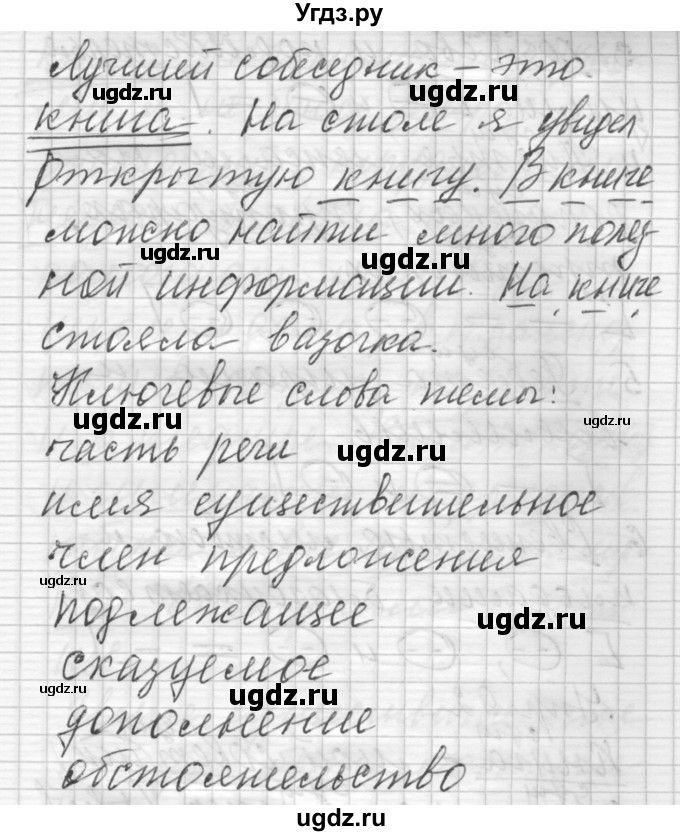 Угдз.ру
Лучший собеседник – это
книга. На столе я увидел
открытую книгу. В книге
можно найти много полез-
ной информации. На книге
стояла вазочка.
Ключевые слова темы:
часть речи
имя существительное
член предложения
подлежащее
сказуемое
дополнение
обстоятельство
ugdz.ru
ugdz.ru
ugdz.ru
ugdz.ru
ugdz.ru
ugdz.ru
ugdz.ru
ugdz.ru
ugdz.ru
ugdz.ru
ugdz.ru
ugdz.ru